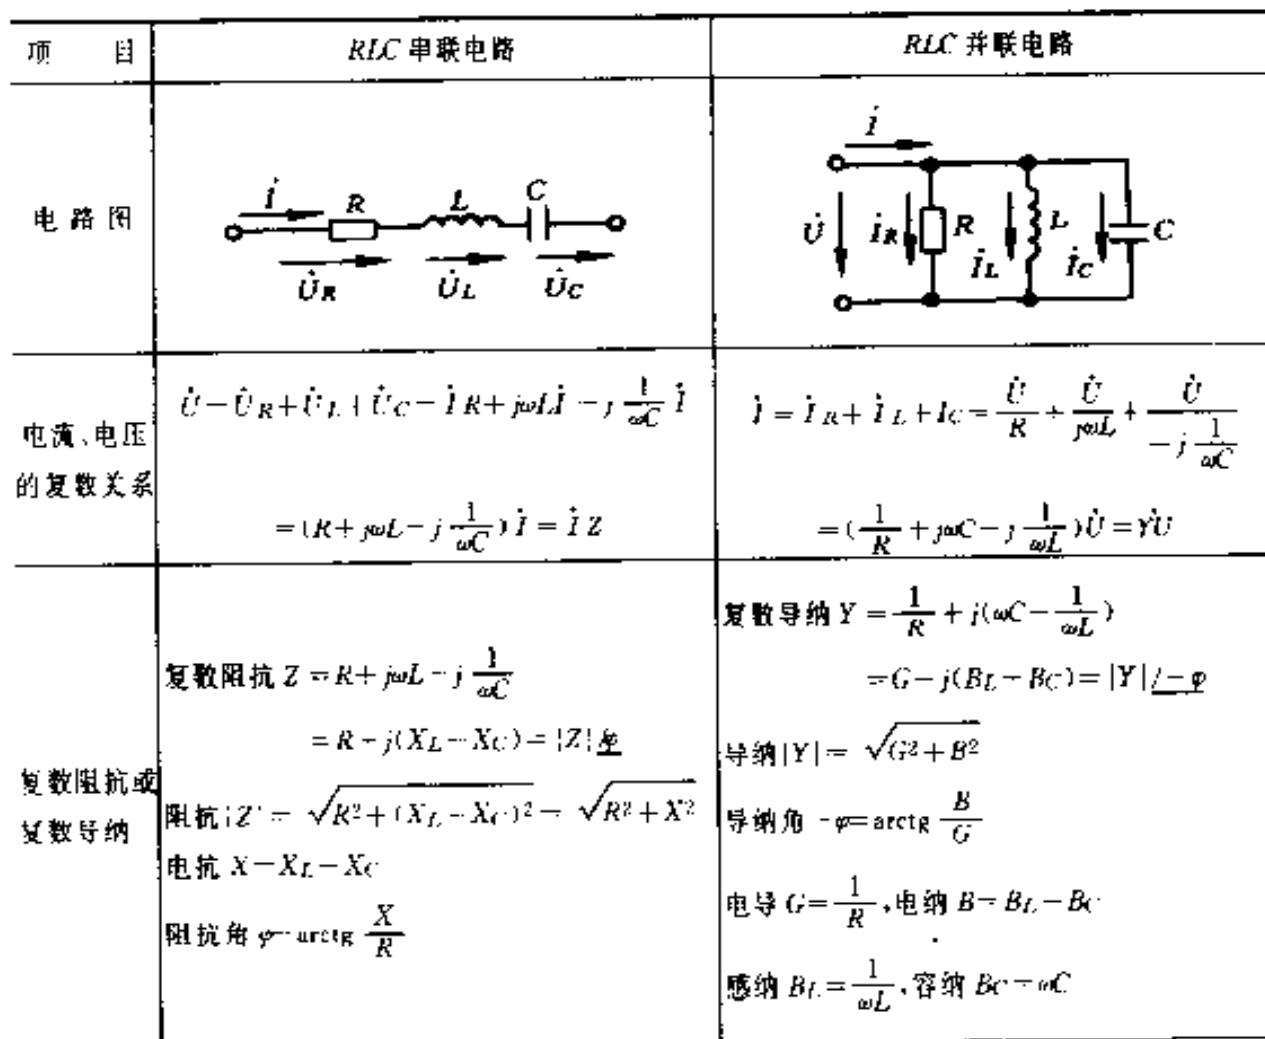 项 目
RLC 串联电路
RLC 并联电路
电路图
İ R L C
U̇R U̇L U̇C
İ
U̇ İR R İL L İC C
电流、电压
的复数关系
U̇ = U̇R + U̇L + U̇C = İR + jωLİ - j 1/ωC İ
= (R + jωL - j 1/ωC) İ = İZ
İ = İR + İL + IC = U̇/R + U̇/jωL + U̇/(-j 1/ωC)
= (1/R + jωC - j 1/ωL)U̇ = YU̇
复数阻抗或
复数导纳
复数阻抗 Z = R + jωL - j 1/ωC
= R - j(XL - XC) = |Z| /φ
阻抗|Z| = √(R² + (XL - XC)²) = √(R² + X²)
电抗 X = XL - XC
阻抗角 φ = arctg X/R
复数导纳 Y = 1/R + j(ωC - 1/ωL)
= G - j(BL - BC) = |Y| /-φ
导纳|Y| = √(G² + B²)
导纳角 -φ = arctg B/G
电导 G = 1/R, 电纳 B = BL - BC
感纳 BL = 1/ωL, 容纳 BC = ωC